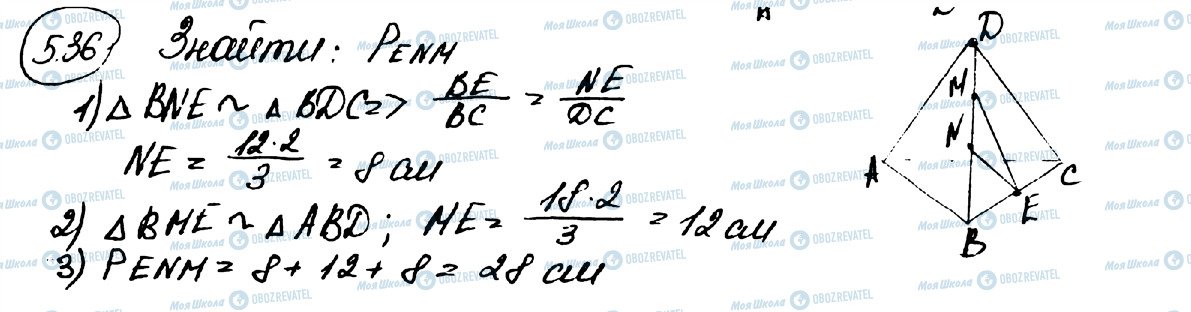 536 Знайти: PENM
1) Δ BNE ~ Δ BDC => BE/BC = NE/DC
NE = 12·2/3 = 8 см
2) Δ BME ~ Δ ABD; ME = 18·2/3 = 12 см
3) PENM = 8 + 12 + 8 = 28 см
D
M
N
A
C
E
B
Моя Школа OBOZREVATEL